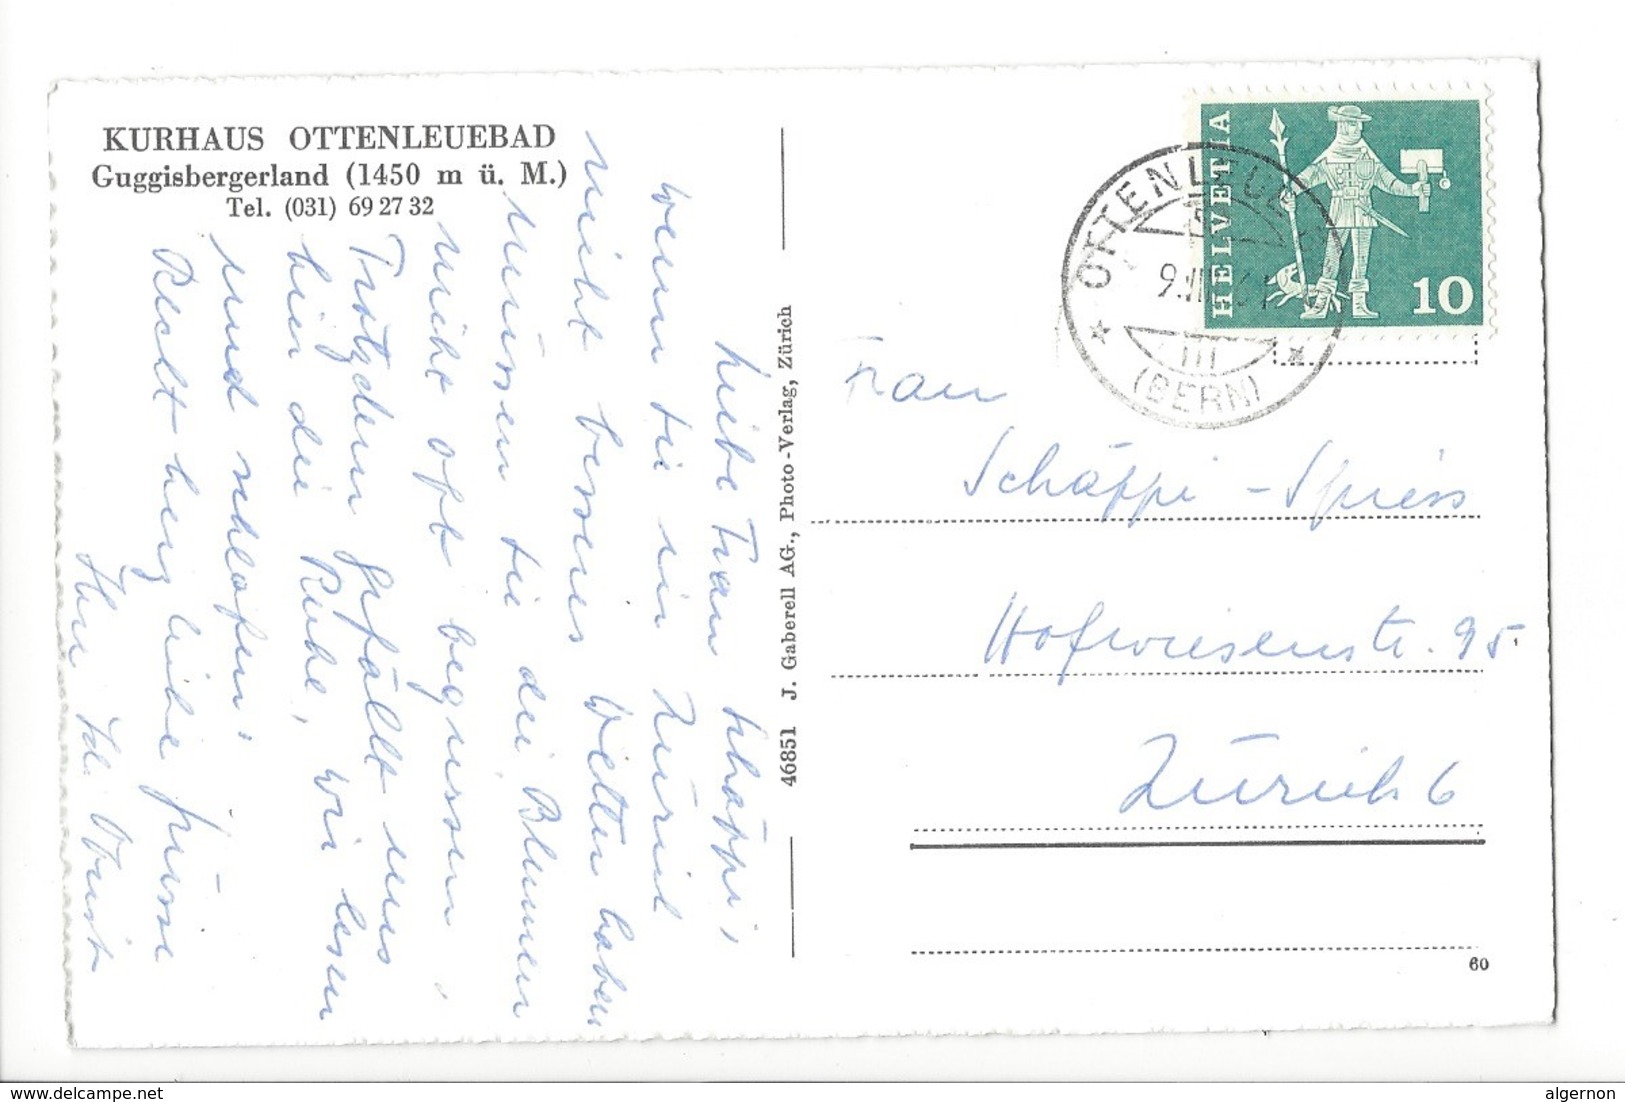 KURHAUS OTTENLEUEBAD
Guggisbergerland (1450 m ü. M.)
Tel. (031) 69 27 32
Liebe Frau Schäppi,
wenn Sie in Zürich
nicht besseres Wetter haben
müssen Sie die Blumen
nicht oft begiessen.
Trotzdem gefällt uns
hier die Ruhe, wir lesen
und schlafen.
Recht herzliche Grüsse
Ihre
46851 J. Gaberell AG., Photo-Verlag, Zürich
HELVETIA
10
OTTENLEUE
(BERN)
Frau
Schäppi - Spiess
Hofwiesenstr. 95.
Zürich 6
60
www.delcampe.net
algernon